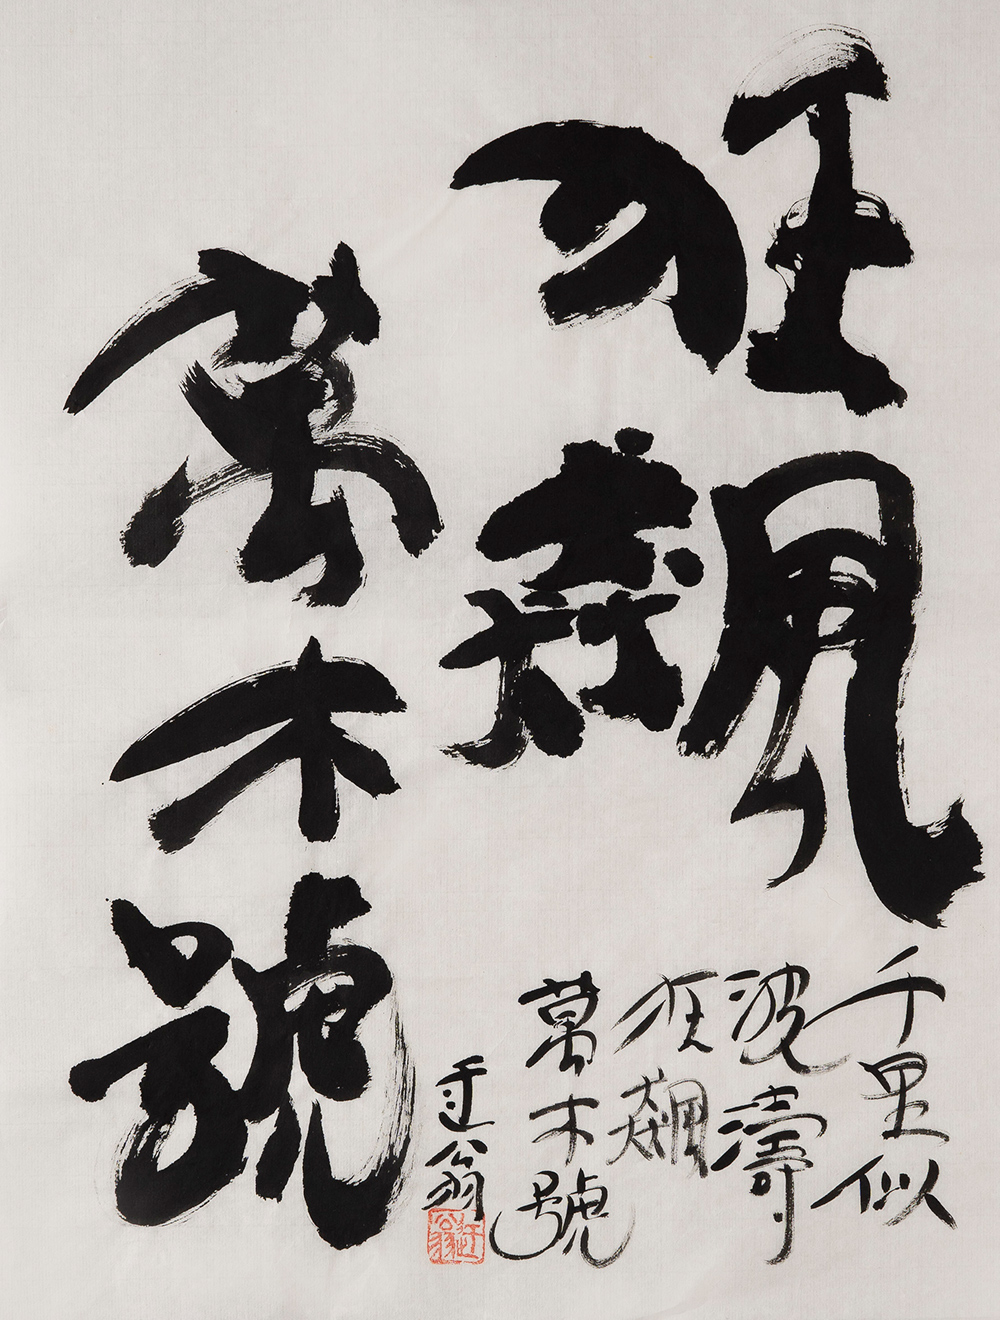 狂飆
萬木號
千里似
波濤
狂飆
萬木號
迂翁
迂翁